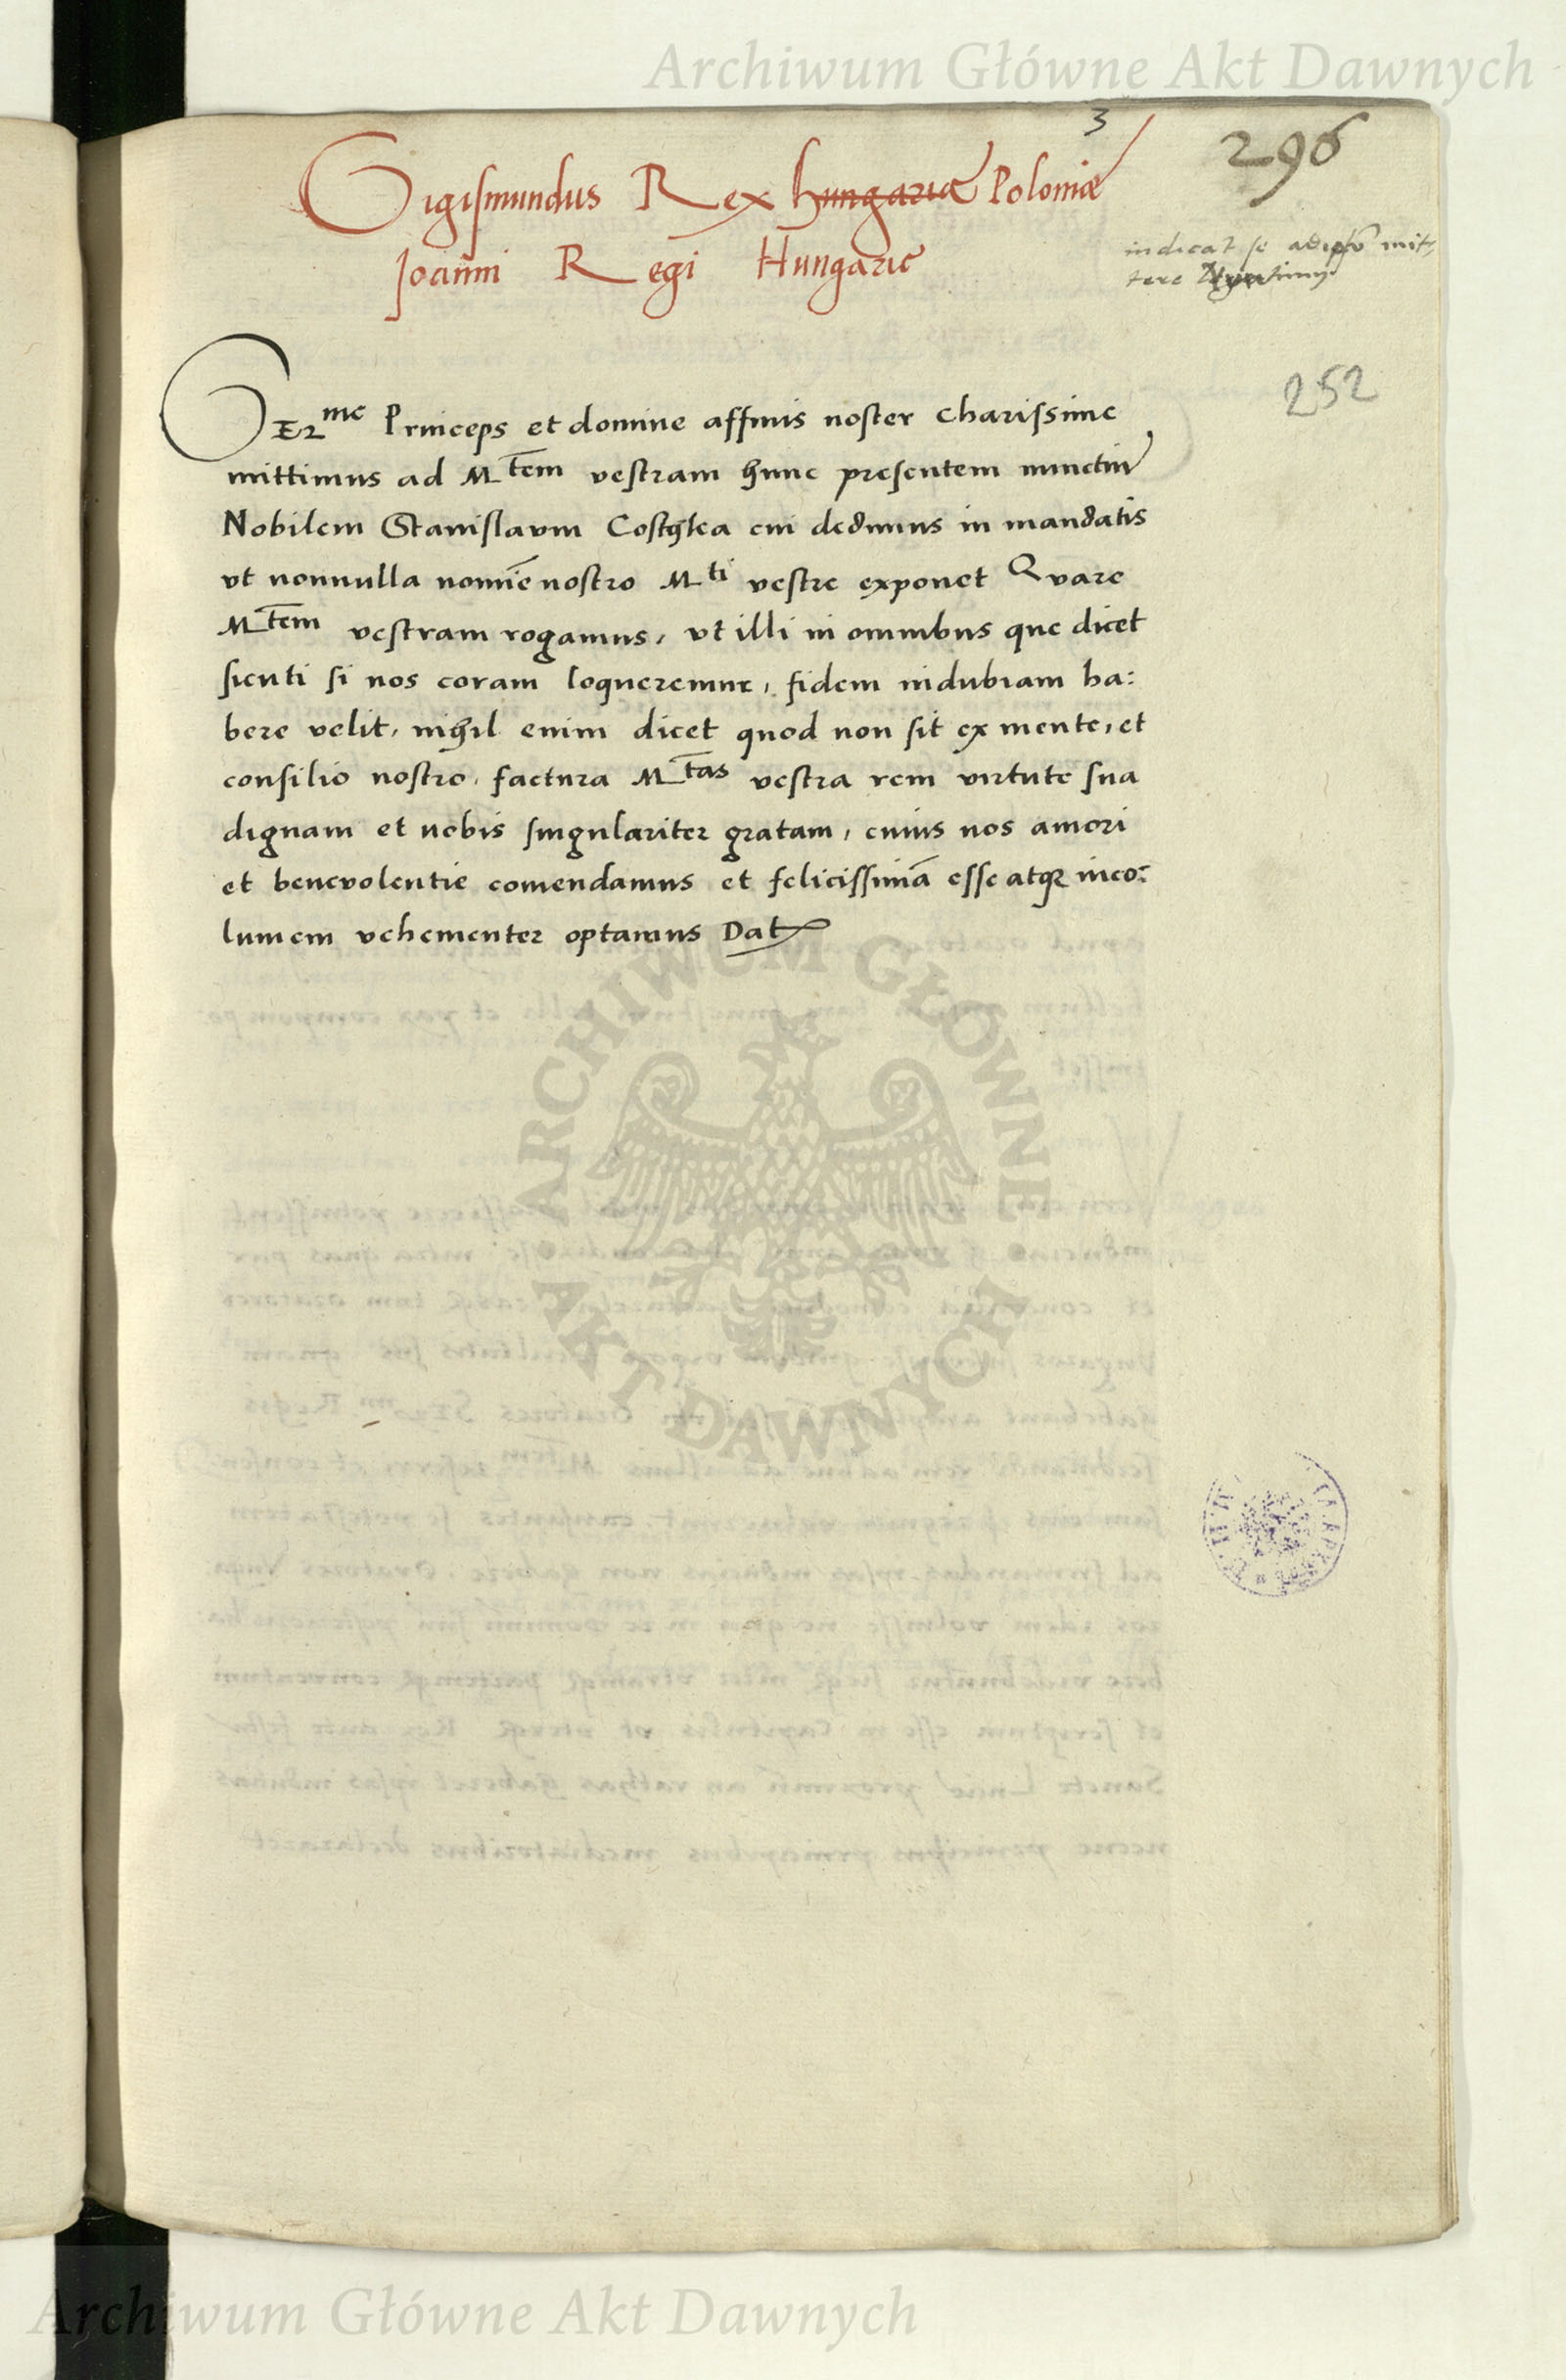 Archiwum Główne Akt Dawnych
3
296
Sigismundus Rex hungariæ Poloniæ
Joanni Regi Hungarie
indicat se ad ipsū mit-
tere
252
SEr^me Princeps et domine affinis noster charissime
mittimus ad M^tem vestram hunc presentem nunctiū
Nobilem Stanislaum Costhka cui dedimus in mandatis
vt nonnulla nomīe nostro M^ti vestre exponet Quare
M^tem vestram rogamus, vt illi in omnibus que dicet
sicuti si nos coram loqueremur, fidem indubiam ha:
bere velit, nihil enim dicet quod non sit ex mente, et
consilio nostro, factura M^tas vestra rem virtute sua
dignam et nobis singulariter gratam, cuius nos amori
et benevolentie comendamus et felicissimā esse atq̃ inco:
lumem vehementer optamus Dat
ARCHIWUM GŁÓWNE
AKT DAWNYCH
Archiwum Główne Akt Dawnych